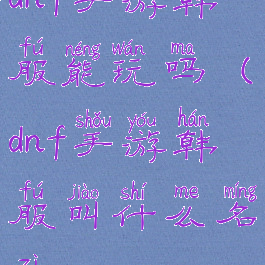 dnf手游韩
fú néng wán ma
服能玩吗（
shǒu yóu hán
dnf手游韩
fú jiào shí me míng
服叫什么名
zì